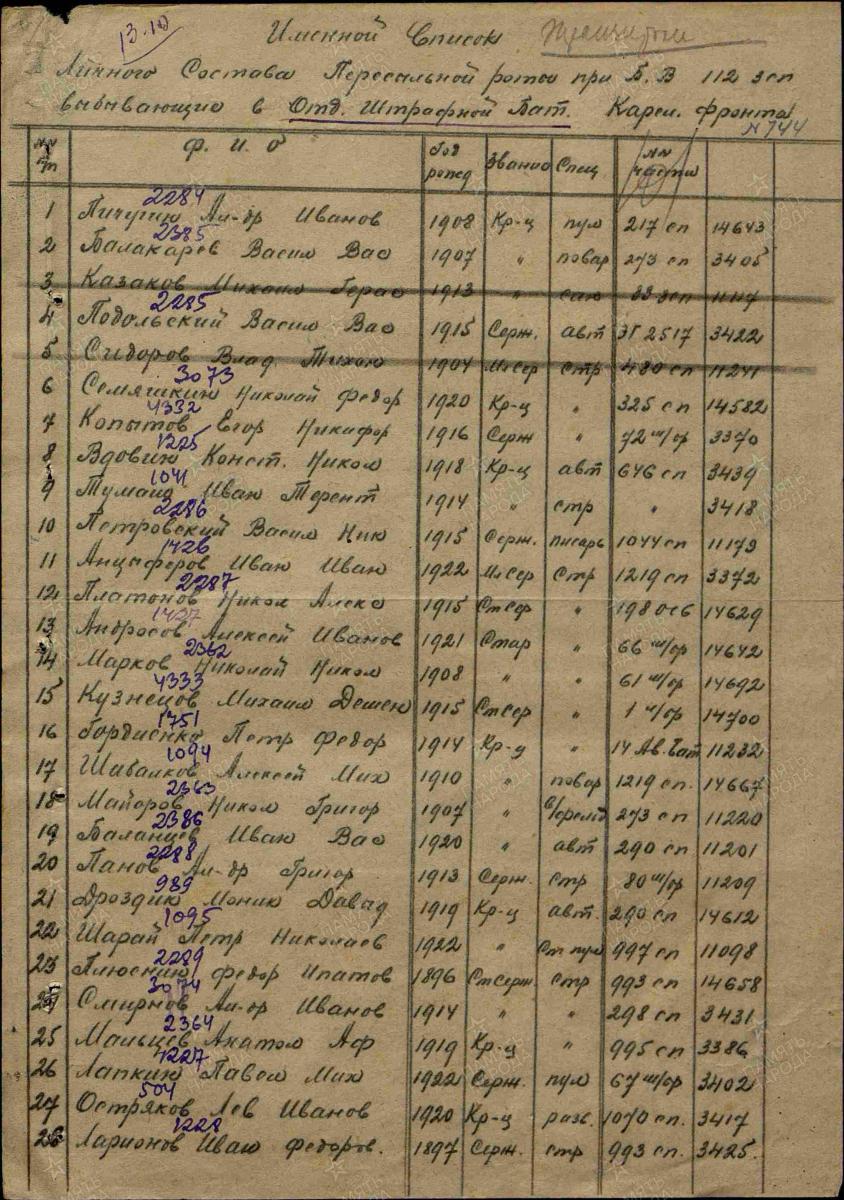 13.10
Именной Список
Личного Состава Пересыльной роты при Б.В 112 зсп
выбывающие в Отд. Штрафной Бат. Карел. фронта
N 744
NN пп Ф. И. О Год рожд Звание Спец NN части
2284
1 Пичугин Ал-др Иванов 1908 Кр-ц пул 217 сп 14643
2385
2 Балакарев Васил Вас 1907 " повар 273 сп 3405
3 Казаков Михаил Герас 1913 " 33 зсп
2285
4 Подольский Васил Вас 1915 Серж. авт 3422
5 Сидоров Влад. Тихон 1904 МлСер стр 480 сп 11241
3073
6 Семяшкин Николай Федор 1920 Кр-ц " 325 сп 14582
4332
7 Копытов Егор Никифор 1916 Серж " 72 ш/ор 3370
1225
8 Вдовин Конст. Никол 1918 Кр-ц авт 646 сп 3439
1041
9 Туманд Иван Терент 1914 " стр " 3418
2286
10 Петровский Васил Ник 1915 Серж. писарь 1044 сп 11173
1426
11 Анцыферов Иван Иван 1922 МлСер Стр 1219 сп 3372
2287
12 Платонов Никол Алекс 1915 СтСер " 198 осб 14629
1427
13 Андросов Алексей Иванов 1921 Стар " 66 ш/ор 14642
2362
14 Марков Николай Никол 1908 " " 61 ш/ор 14692
4333
15 Кузнецов Михаил Демен 1915 СтСер " 1 ш/ор 14700
1751
16 Гордиенко Петр Федор 1914 Кр-ц " 14 Ав.бат 11232
1094
17 Шивалков Алексей Мих 1910 " повар 1219 сп. 14667
2363
18 Майоров Никол Григор 1907 " 273 сп 11220
2386
19 Баланцев Иван Вас 1920 " авт 290 сп 11201
2288
20 Панов Ал-др Григор 1913 Серж. стр 80 ш/ор 11209
989
21 Дроздик Моник Давад 1919 Кр-ц авт. 290 сп 14612
1095
22 Шарай Петр Николаев 1922 " Ст пул 997 сп 11098
2289
23 Плюснин Федор Ипатов 1896 СтСерж. стр 993 сп 14658
3074
24 Смирнов Ал-др Иванов 1914 " " 298 сп 3431
2364
25 Мальцев Анатол Аф 1919 Кр-ц " 995 сп 3386
1227
26 Лапкин Павел Мих 1922 Серж. пул 67 ш/ор 3402
504
27 Остряков Лев Иванов 1920 Кр-ц разв. 1070 сп. 3417
1228
28 Ларионов Иван Федоров. 1897 Серж. стр 993 сп 3425.